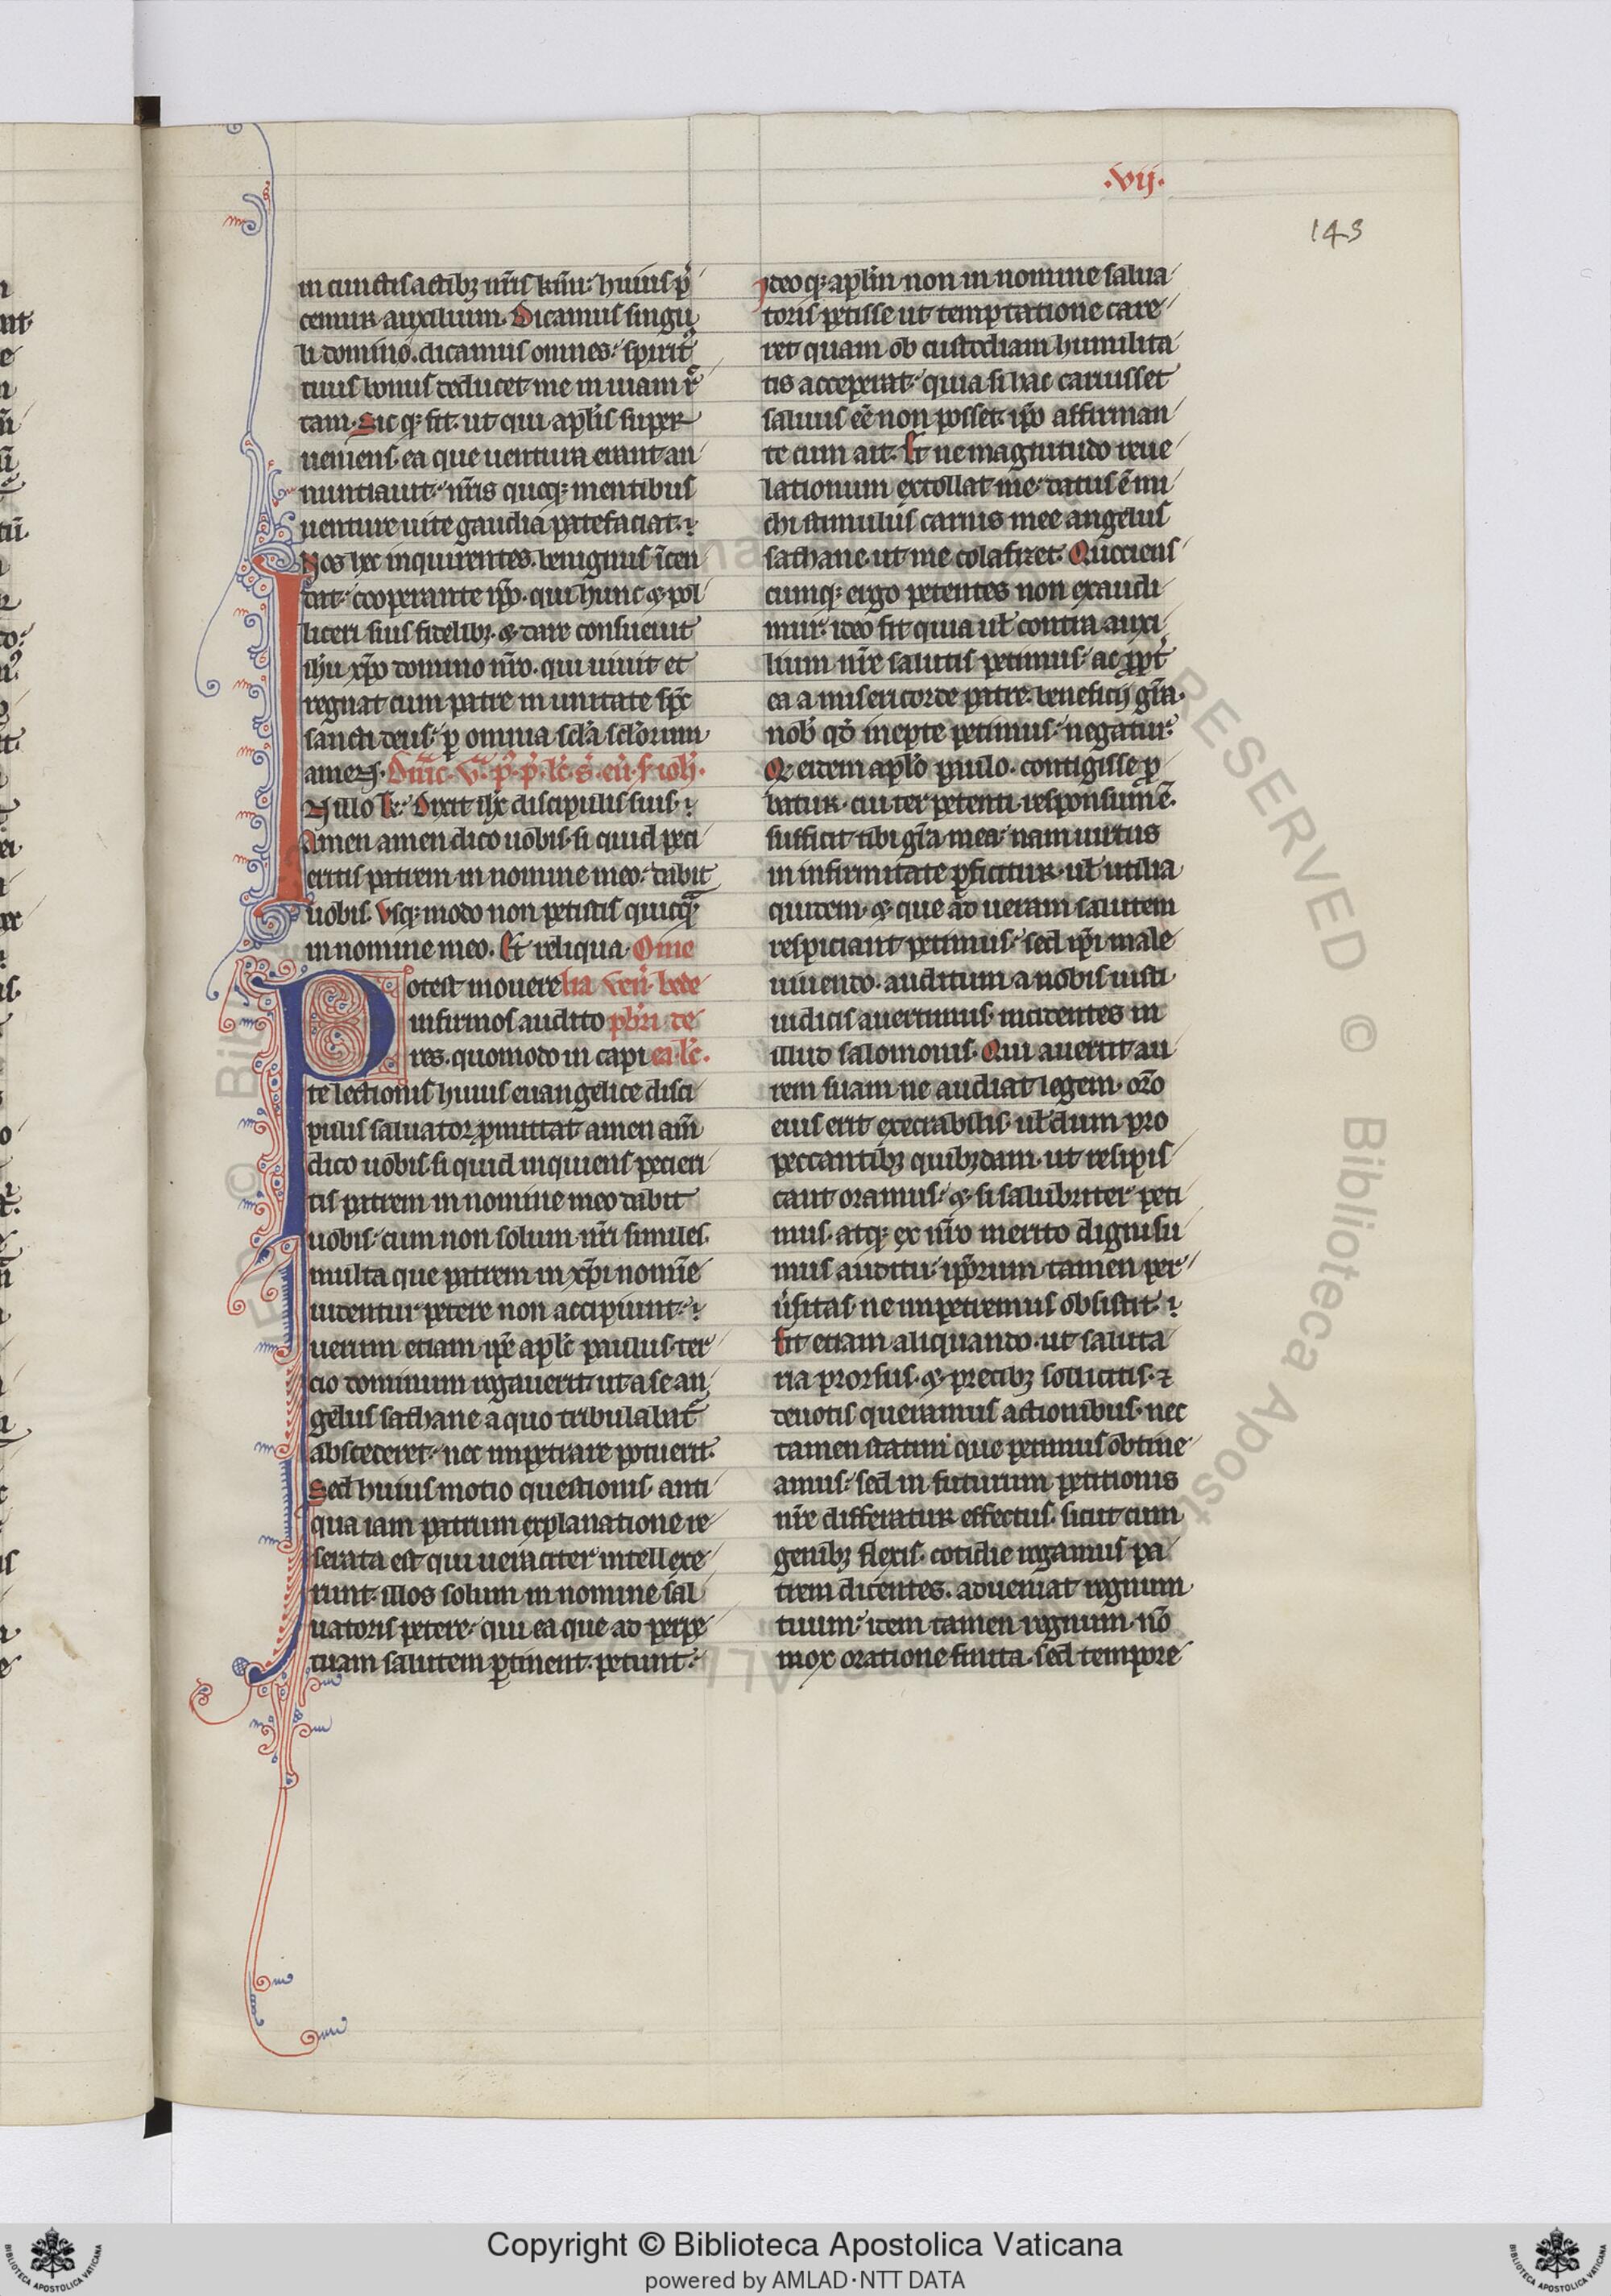 .vij.
143
in cunctis actibꝫ nr̃is kr̃mi: huius p̃
cemur auxilium. Dicamus singu
li domino. dicamus omnes: spirit᷒
tuus bonus deducet me in uiam r̃
tam. Sic qꝫ fit. ut qui apl̃is super
ueniens. ea que uentura erant an
nuntiauit: nr̃is quoqꝫ mentibus
uenture uite gaudia patefaciat. ⁊
Nos hec inquirentes. benignus ĩcen
dat: cooperante ip̃o. qui hunc ⁊ pol
liceri suis fidelibꝫ. ⁊ dare consueuit
ih̃u xp̃o domino nr̃o. qui uiuit et
regnat cum patre in unitate sp̃c
sancti deus: ꝑ omnia sc̃l̃a sc̃l̃orum
amen. Dñic. v. p̃. p̃. lc̃. s̃. eũ. s. ioh̃.
In illo t̃. Dixit ih̃c discipulis suis. ⁊
Amen amen dico uobis. si quid peti
eritis patrem in nomine meo: dabit
uobis. Vsqꝫ modo non petistis quicq̃
in nomine meo. Et reliqua. Ome
Potest mouere lia ven̉. bede
infirmos audito pbr̃i. de
res. quomodo in capi ea. lc̃.
te lectionis huius euangelice disci
pulis saluator ꝓmittat amen am̃
dico uobis. si quid inquiens petieri
tis patrem in nomine meo dabit
uobis: cum non solum nr̃i similes.
multa que patrem in xp̃i nomĩe
uidentur petere non accipiunt: ⁊
uerum etiam ip̃e apl̃c paulus. ter
cio dominum rogauerit. ut a se an
gelus sathane a quo tribulabat᷒
abscederet: nec impetrare potuerit.
Sed huius motio questionis. anti
qua iam patrum explanatione re
serata est. qui ueraciter intellexe
runt. illos solum in nomine sal
uatoris petere: qui ea que ad perpe
tuam salutem ꝑtinent. petunt:
Ideoqꝫ apl̃m non in nomine salua
toris petisse ut temptatione care
ret quam ob custodiam humilita
tis acceperat: quia si hac caruisset
saluus eẽ non posset. ip̃o affirman
te cum ait. Et ne magnitudo reue
lationum extollat me. datus ẽ mi
chi stimulus carnis mee angelus
sathane. ut me colafizet. Quociens
cumqꝫ ergo petentes non exaudi
mur. ideo fit quia ul̃ contra auxi
lium nr̃e salutis petimus: ac ꝓpt̃
ea a misericorde patre. beneficij gr̃a.
nob̃ qd̃ inepte petimus: negatur.
Qd̃ eidem apl̃o paulo. contigisse ꝓ
batur. cui ter petenti. responsum ẽ.
sufficit tibi gr̃a mea: nam uirtus
in infirmitate ꝑficitur. ul̃ utilia
quidem. ⁊ que ad ueram salutem
respiciant petimus: sed ip̃i male
uiuendo. auditum a nobis iusti
iudicis auertimus. incidentes in
illud salomonis. Qui auertit au
rem suam ne audiat legem. or̃o
eius erit execrabilis. ul̃ dum pro
peccantibꝫ quibꝫdam. ut resipis
cant oramus: ⁊ si salubriter peti
mus. atqꝫ ex nr̃o merito digni su
mus auditu: ip̃orum tamen per
ũsitas. ne impetremus obsistit. ⁊
Fit etiam aliquando. ut saluta
ria prorsus. ⁊ precibꝫ sollicitis. ⁊
deuotis queramus actionibus. nec
tamen statim que petimus obtine
amus: sed in futurum petitionis
nr̃e differatur effectus. sicut cum
genibꝫ flexis. cotidie rogamus pa
trem dicentes. adueniat regnum
tuum: idem tamen regnum. nõ
mox oratione finita. sed tempore
Copyright © Biblioteca Apostolica Vaticana
powered by AMLAD·NTT DATA